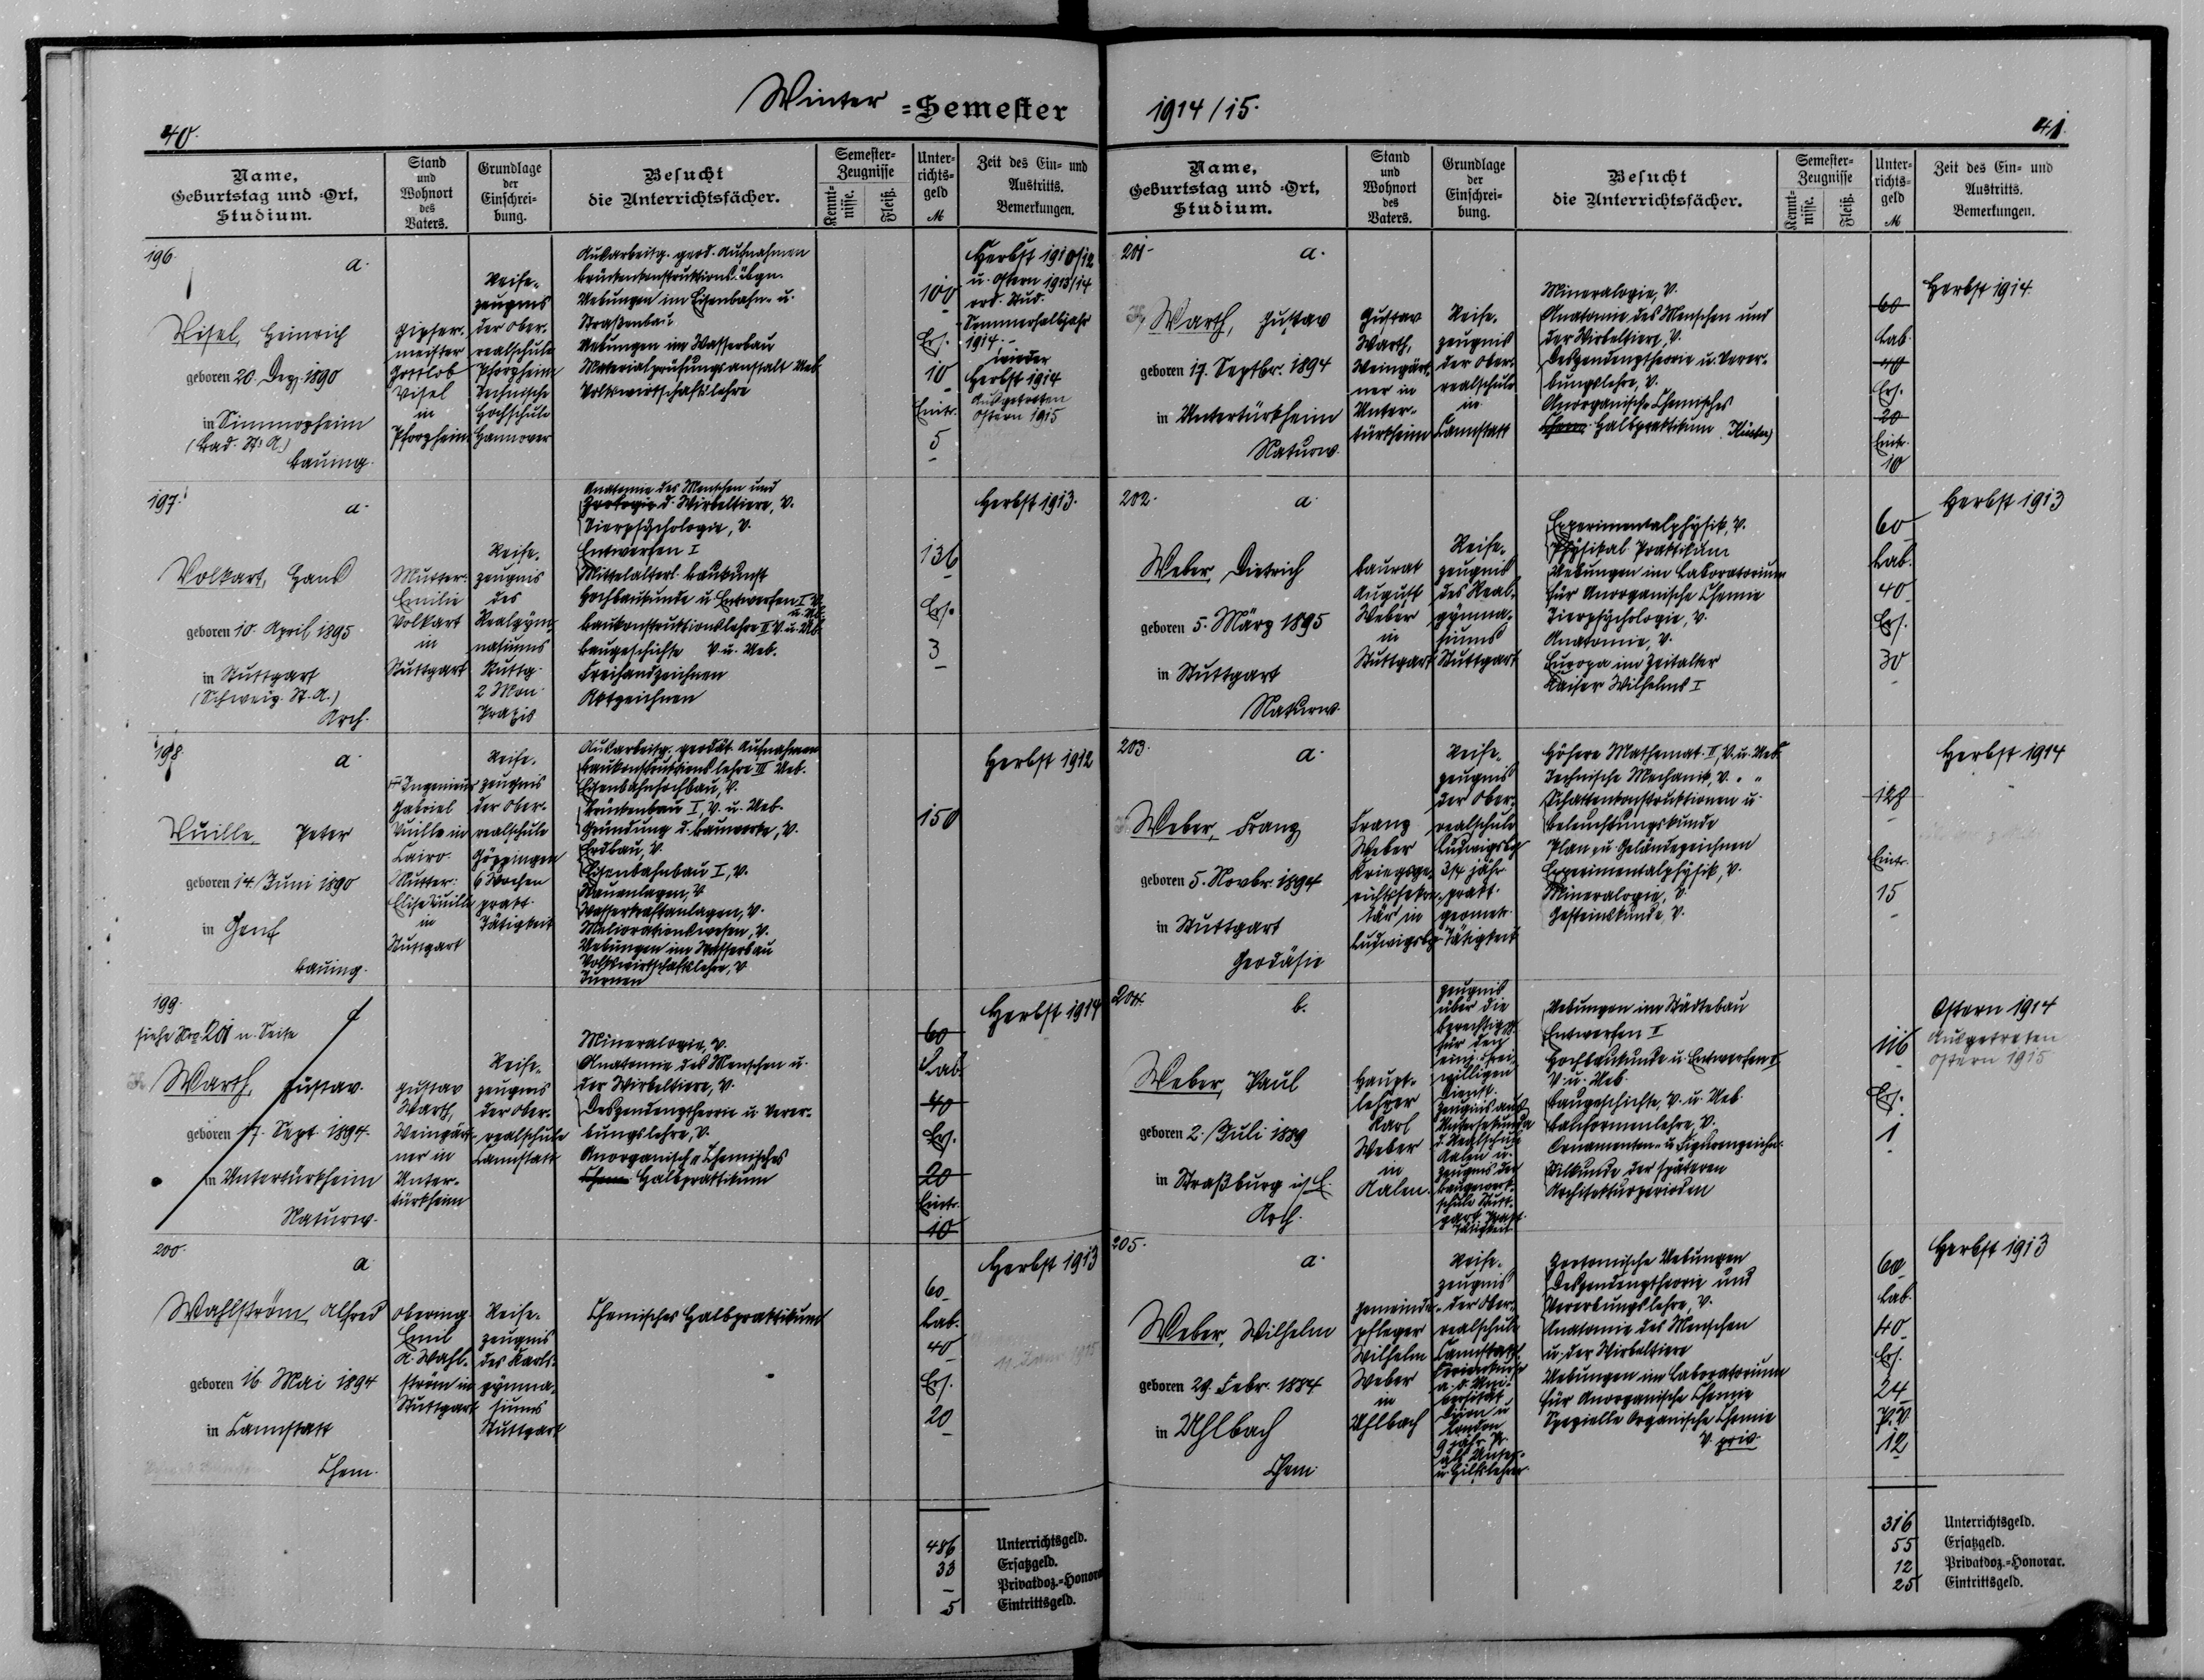 Winter =Semester
1914/15.
40.
41.
Name,
Geburtstag und =Ort,
Studium.
Stand
und
Wohnort
des
Vaters.
Grundlage
der
Einschrei=
bung.
Besucht
die Unterrichtsfächer.
Semester=
Zeugnisse
Kennt=
nisse.
Fleiß.
Unter=
richts=
geld
M
Zeit des Ein= und
Austritts.
Bemerkungen.
196.
a.
Visel, Heinrich
geboren 20. Dez. 1890
in Simmozheim
(Bad. St. A.)
Bauing.
Gipser-
meister
Gottlob
Visel
in
Pforzheim
Reife-
zeugnis
der Ober-
realschule
Pforzheim
Technische
Hochschule
Hannover
Ausarbeitg. geod. Aufnahmen
Brückenkonstruktions-Übgn.
Uebungen im Eisenbahn- u.
Straßenbau
Uebungen im Wasserbau
Materialprüfungsanstalt Ueb.
Volkswirtschaftslehre
100
Ers.
10
Eintr.
5
Herbst 1910/12
u. Ostern 1913/14
ord. Stud.
Sommerhalbjahr
1914.-
wieder
Herbst 1914
Ausgetreten
Ostern 1915
197.
a.
Volkart, Hans
geboren 10. April 1895
in Stuttgart
(Schweiz. St. A.)
Arch.
Mutter:
Emilie
Volkart
in
Stuttgart
Reife-
zeugnis
des
Realgym-
nasiums
Stuttg.
2 Mon.
Praxis
Anatomie des Menschen und
Zoologie d. Wirbeltiere, V.
Tierpsychologie, V.
Entwerfen I
Mittelalterl. Baukunst
Hochbaukunde u. Entwerfen I V.
u. Ueb.
Baukonstruktionslehre II V. u. Ueb.
Baugeschichte V. u. Ueb.
Freihandzeichnen
Aktzeichnen
136
Ers.
3
Herbst 1913.
198.
a.
Vuille, Peter
geboren 14. Juni 1890
in Genf
Bauing.
† Ingenieur
Gabriel
Vuille in
Cairo.
Mutter:
Elise Vuille
in
Stuttgart
Reife-
zeugnis
der Ober-
realschule
Göppingen
6 Wochen
prakt.
Tätigkeit
Ausarbeitg. geodät. Aufnahmen
Baukonstruktionslehre III Ueb.
Eisenbahnhochbau, V.
Brückenbau I, V. u. Ueb.
Gründung d. Bauwerke, V.
Erdbau, V.
Eisenbahnbau I, V.
Stauanlagen, V.
Wasserkraftanlagen, V.
Meliorationswesen, V.
Uebungen im Wasserbau
Volkswirtschaftslehre, V.
Turnen
150
Herbst 1912
199.
siehe Nro. 201 n. Seite
Warth, Gustav.
geboren 17. Sept. 1894.
in Untertürkheim
Naturw.
Gustav
Warth,
Weingärt-
ner in
Unter-
türkheim
Reife-
zeugnis
der Ober-
realschule
Cannstatt
Mineralogie, V.
Anatomie des Menschen u.
der Wirbeltiere, V.
Deszendenztheorie u. Verer-
bungslehre, V.
Anorganisch-Chemisches
Chem. Halbpraktikum
60
Lab.
40
Ers.
20
Eintr.
10
Herbst 1914
200.
a
Wahlström, Alfred
geboren 16. Mai 1894
in Cannstatt
Chem.
Obering.
Emil
A. Wahl-
ström in
Stuttgart
Reife-
zeugnis
des Karls-
gymna-
siums
Stuttgart
Chemisches Halbpraktikum
60
Lab.
40
Ers.
20
Herbst 1913
11. Janr. 1915
486 Unterrichtsgeld.
33 Ersatzgeld.
– Privatdoz.=Honorar
5 Eintrittsgeld.
Name,
Geburtstag und =Ort,
Studium.
Stand
und
Wohnort
des
Vaters.
Grundlage
der
Einschrei=
bung.
Besucht
die Unterrichtsfächer.
Semester=
Zeugnisse
Kennt=
nisse.
Fleiß.
Unter=
richts=
geld
M
Zeit des Ein= und
Austritts.
Bemerkungen.
201.
a.
Warth, Gustav
geboren 17. Septbr. 1894
in Untertürkheim
Naturw.
Gustav
Warth,
Weingärt-
ner in
Unter-
türkheim
Reife-
zeugnis
der Ober-
realschule
in
Cannstatt
Mineralogie, V.
Anatomie des Menschen und
der Wirbeltiere, V.
Deszendenztheorie u. Verer-
bungslehre, V.
Anorganisch-Chemisches
Chem. Halbpraktikum (Küster)
60
Lab.
40
Ers.
20
Eintr.
10
Herbst 1914.
202.
a.
Weber, Dietrich
geboren 5. März 1895
in Stuttgart
Naturw.
Baurat
August
Weber
in
Stuttgart
Reife-
zeugnis
des Real-
gymna-
siums
Stuttgart
Experimentalphysik, V.
Physikal. Praktikum
Uebungen im Laboratorium
für Anorganische Chemie
Tierpsychologie, V.
Anatomie, V.
Europa im Zeitalter
Kaiser Wilhelms I
60
Lab.
40
Ers.
30
Herbst 1913
203.
a.
Weber, Franz
geboren 5. Novbr. 1894
in Stuttgart
Geodäsie
Franz
Weber
Kriegsge-
richtssekre-
tär in
Ludwigsbg.
Reife-
zeugnis
der Ober-
realschule
Ludwigsbg.
3/4 jähr.
prakt.
geomet.
Tätigkeit
Höhere Mathemat. II, V. u. Ueb.
Technische Mechanik, V. " "
Schattenkonstruktionen u.
Beleuchtungskunde
Plan- u. Geländezeichnen
Experimentalphysik, V.
Mineralogie, V.
Gesteinskunde, V.
128
Eintr.
15
Herbst 1914
204.
b.
Weber, Paul
geboren 2. Juli 1889
in Straßburg i/E.
Arch.
Haupt-
lehrer
Karl
Weber
in
Aalen.
Zeugnis
über die
Berechtigg.
für den
einj. frei-
willigen
Dienst.
Zeugnis aus
Untersekunda
d. Realschule
Aalen u.
Zeugnis der
Baugewerk-
schule Stutt-
gart. Prakt.
Tätigkeit
Uebungen im Städtebau
Entwerfen II
Hochbaukunde u. Entwerfen I
V. u. Ueb.
Baugeschichte, V. u. Ueb.
Bauformenlehre, V.
Ornamenten- u. Figurenzeichn.
Stilkunde der späteren
Architekturperioden
116
Ers.
1
Ostern 1914
Ausgetreten
Ostern 1915
205.
a.
Weber, Wilhelm
geboren 29. Febr. 1884
in Uhlbach
Chem.
Gemeinde-
pfleger
Wilhelm
Weber
in
Uhlbach
Reife-
zeugnis
der Ober-
realschule
Cannstatt.
Ferienkurse
a. d. Uni-
versität
Dijon u.
London
9 jähr. Pr.
als Unter-
u. Hilfslehrer
Zootomische Uebungen
Deszendenztheorie und
Vererbungslehre, V.
Anatomie des Menschen
u. der Wirbeltiere
Uebungen im Laboratorium
für Anorganische Chemie
Spezielle Organische Chemie
V. priv.
60
Lab.
40
Ers.
24
P.V.
12
Herbst 1913
316 Unterrichtsgeld.
55 Ersatzgeld.
12 Privatdoz.=Honorar.
25 Eintrittsgeld.